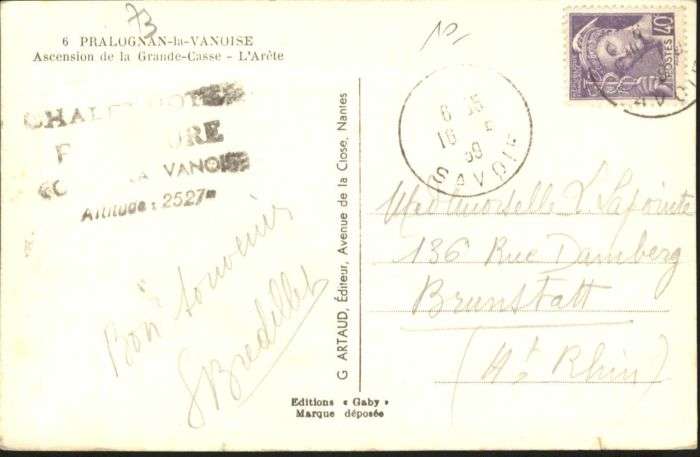 73
6 PRALOGNAN-la-VANOISE
Ascension de la Grande-Casse - L'Arête
CHALET HOTEL
F URE
LA VANOISE
Altitude : 2527m
Bon souvenir
Bredillet
G ARTAUD, Éditeur, Avenue de la Close, Nantes
Editions « Gaby »
Marque déposée
SAVOIE
40c
POSTES
Medlmorselle L Lapointe
136 Rue Damberg
Brunstatt
(Ht Rhin)